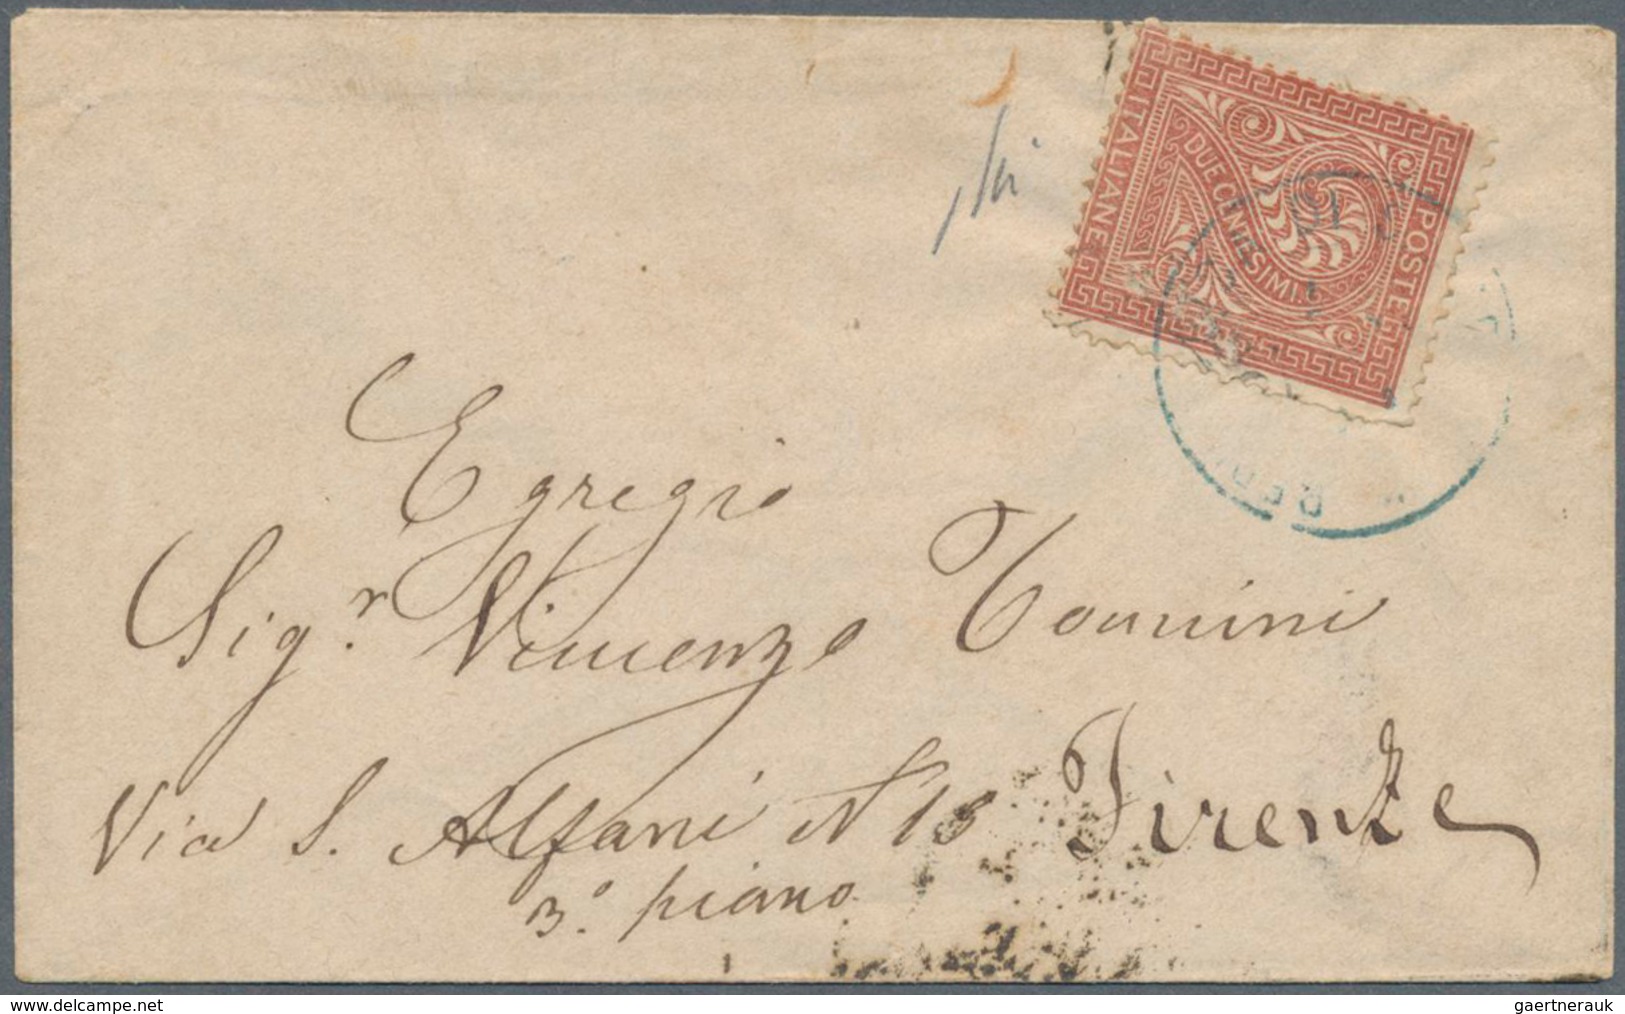 POSTE
ITALIANE
DUE CENTESIMI
10
Egregio
Sig.r Vincenzo
Via S. Alfani N 18 Firenze
3.° piano
delcampe.net
gaertnerauk